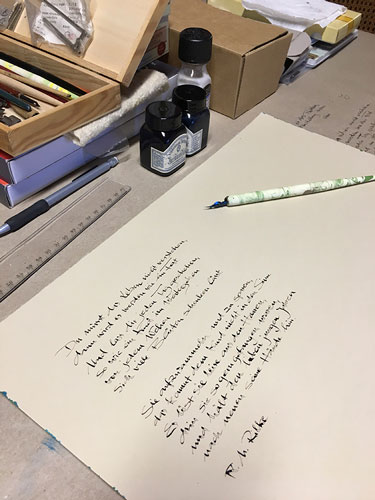 Du musst das Leben nicht verstehen,
dann wird es werden wie ein Fest
Und lass dir jeden Tag geschehen
so wie ein Kind im Weitergehen
von jedem Wehen
sich viele Blüten schenken lässt
Sie aufzusammeln und zu sparen,
das kommt dem Kind nicht in den Sinn
Es löst sie leise aus den Haaren,
drin sie so gern gefangen waren,
und hält den lieben jungen Jahren
nach neuen seine Hände hin
R. M. Rilke